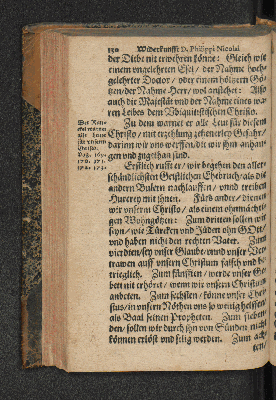 130 Widerkunfft D. Philippi Nicolai
der Titul nit erwehren könne: Gleich wie
einem ungelehrten Esel / der Nahme hoch-
gelehrter Doctor / oder einem höltzern Göt-
zen / der Nahme Herr / wol anstehet: Also
auch die Majestät und der Nahme eines wa-
ren Leibes dem Ubiquitistischen Christo.
Zu dem warnet er alle Leut für diesem
Christo / mit erzehlung zehenerley Gefahr /
darinn wir uns werffen / die wir ihm anhan-
gen und zugethan sind.
Erstlich rufft er / wir begehen den aller-
schändlichsten Geistlichen Ehebruch / als die
andern Bulern nachlauffen / unnd treiben
Hurerey mit ihnen. Fürs ander / dienen
wir unserm Christo / als einem ohnmächti-
gen Wohngötzen: Zum dritten sollen wir
seyn / wie Türcken und Jüden ohn GOtt /
und haben nicht den rechten Vater. Zum
vierdten / sey unser Glaube / unnd unser Ver-
trawen auff unsern Christum falsch und be-
trieglich. Zum fünfften / werde unser Ge-
bett nit erhöret / wenn wir unsern Christum
anbeten. Zum sechsten / könne unser Chri-
stus / in unsern Nöthen uns so wenig helffen /
als Baal seinen Propheten. Zum sieben-
den / sollen wir durch ihn von Sünden nicht
können erlöst und selig werden. Zum ach-
ten /